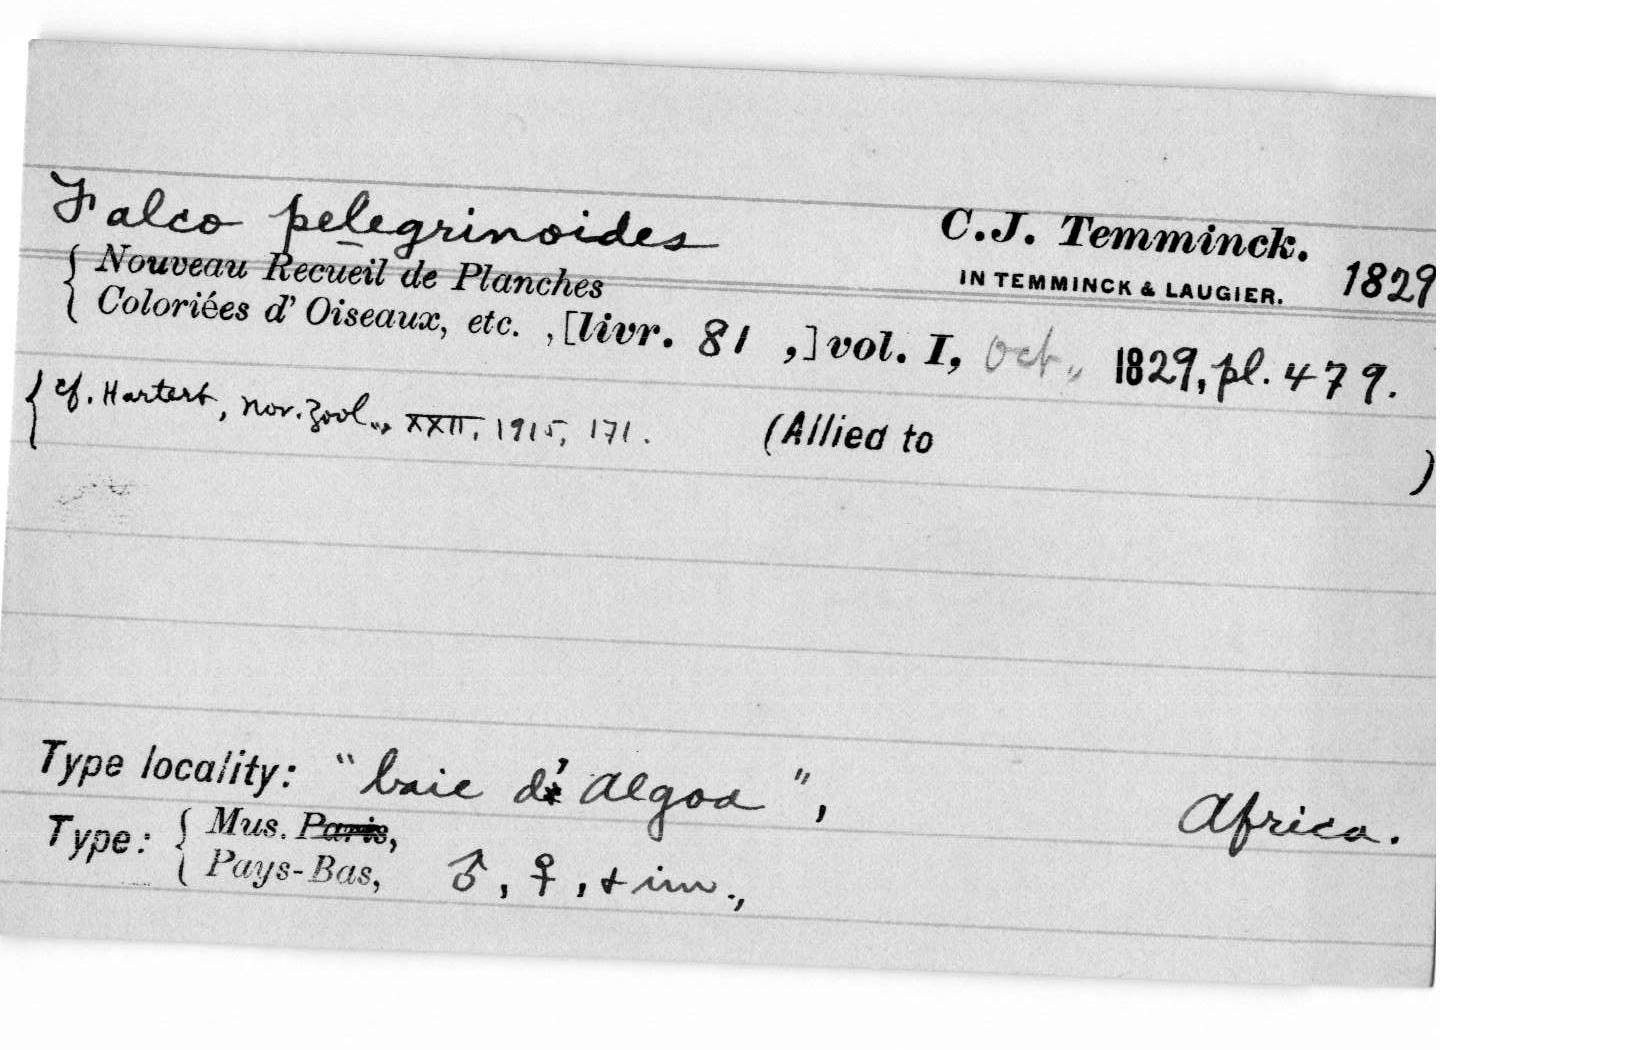 Falco pelegrinoides C.J. Temminck.
Nouveau Recueil de Planches IN TEMMINCK & LAUGIER. 1829
Coloriées d' Oiseaux, etc. , [livr. 81 ,] vol. I, Oct., 1829, pl. 479.
cf. Hartert, Nov. Zool., XXII, 1915, 171. (Allied to )
Type locality: "baie d' Algoa", Africa.
Type: Mus. Paris,
Pays-Bas, ♂, ♀, + im.,